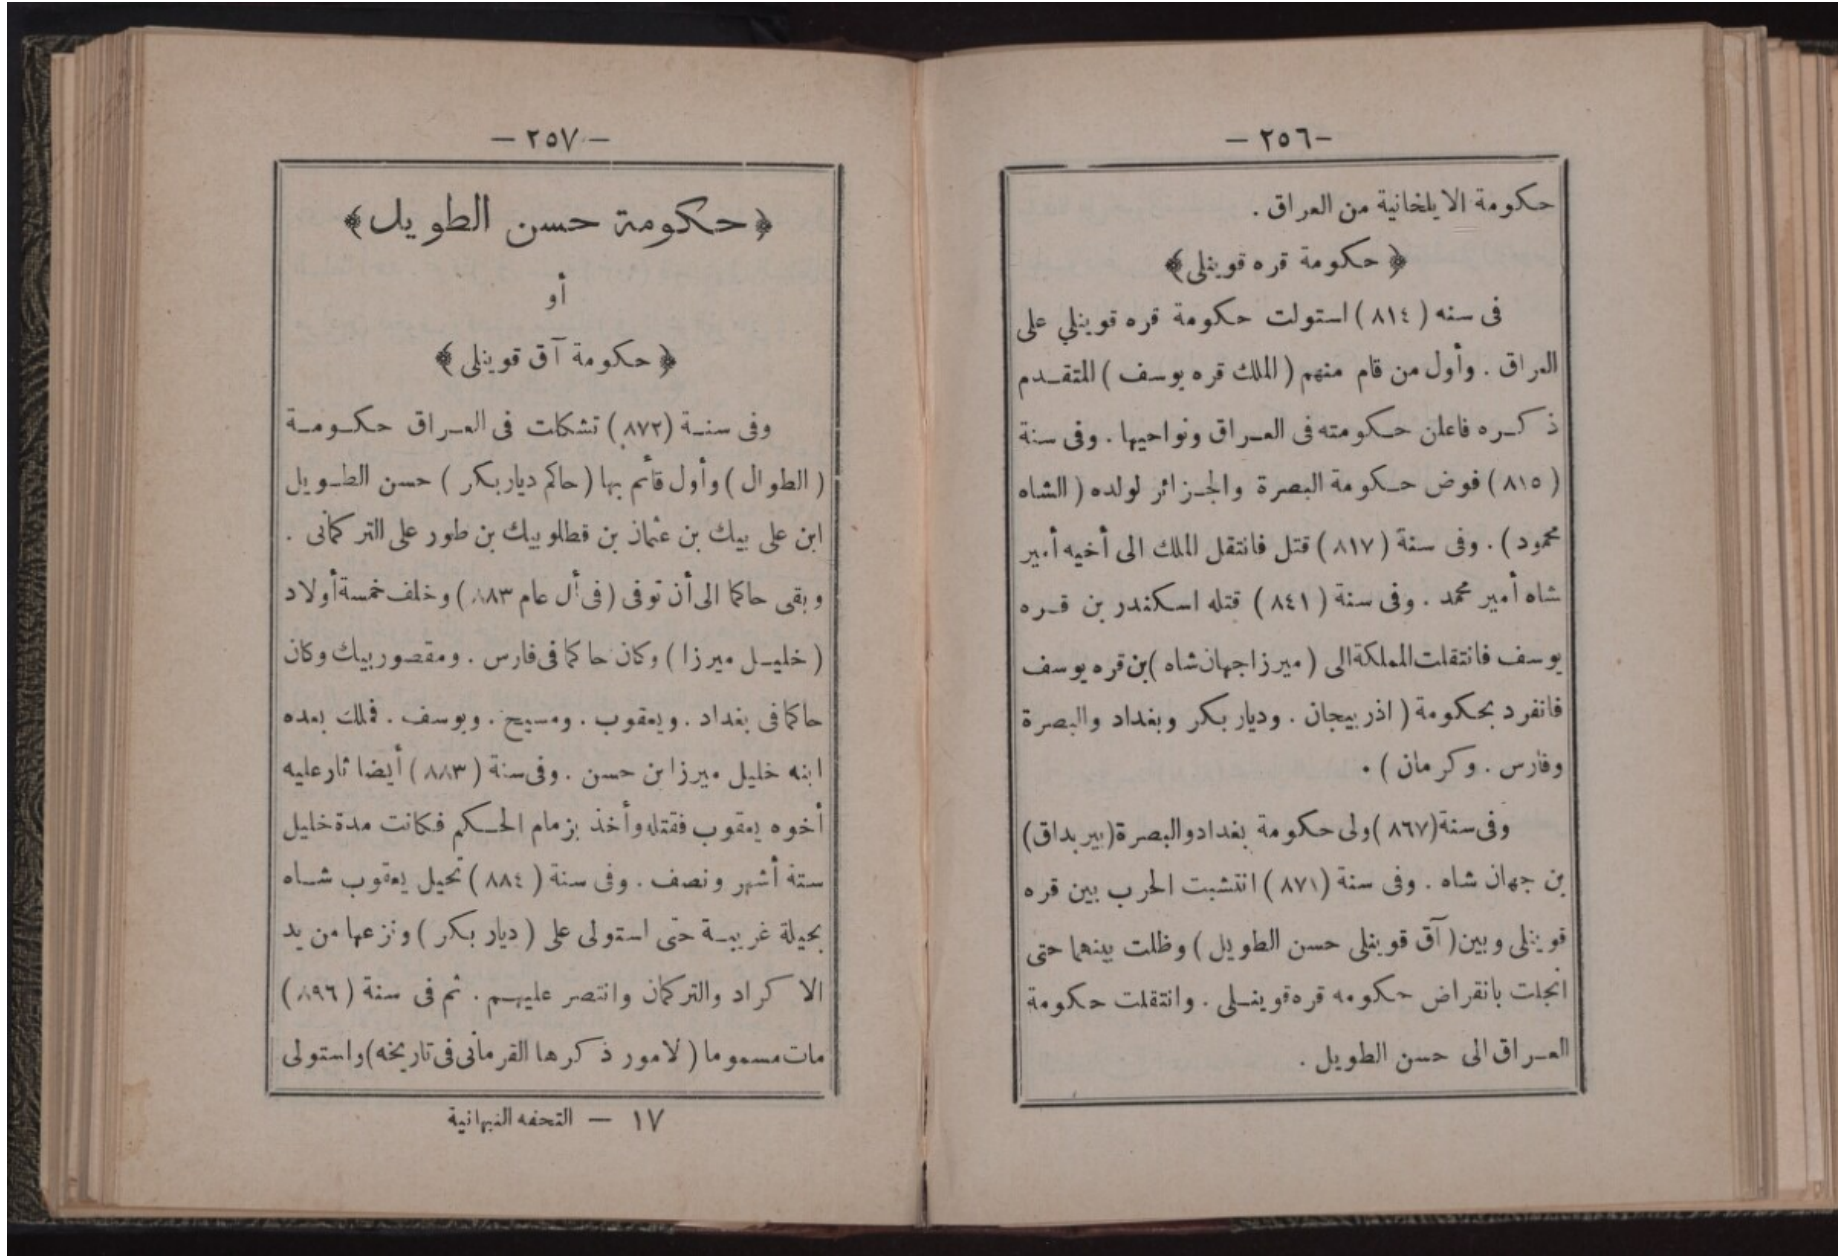 -٢٥٦ -
حكومة الايلخانية من العراق .
﴿ حكومة قره قوينلى ﴾
فى سنه ( ٨١٤ ) استولت حكومة قره قوينلي على
العراق . وأول من قام منهم ( الملك قره يوسف ) المتقـدم
ذكـره فاعلن حـكومته فى العـراق ونواحيها . وفى سنة
( ٨١٥ ) فوض حـكومة البصرة والجـزائر لولده ( الشاه
محمود ) . وفى سنة ( ٨١٧ ) قتل فانتقل الملك الى أخيه أمير
شاه أمير محمد . وفى سنة ( ٨٤١ ) قتله اسكندر بن قـره
يوسف فانتقلت المملكة الى ( ميرزا جهان شاه ) بن قره يوسف
فانفرد بحكومة ( اذربيجان . وديار بكر وبغداد والبصرة
وفارس . وكرمان ) .
وفى سنة (٨٦٧ ) ولى حكومة بغداد والبصرة (بير بداق)
بن جهان شاه . وفى سنة ( ٨٧١ ) انتشبت الحرب بين قره
قوينلى وبين ( آق قوينلى حسن الطويل ) وظلت بينهما حتى
انجلت بانقراض حكومه قره قوينـلى . وانتقلت حكومة
العـراق الى حسن الطويل .
— ٢٥٧ —
﴿ حكومة حسن الطويل ﴾
أو
﴿ حكومة آق قوينلى ﴾
وفى سنـة ( ٨٧٢ ) تشكلت فى العـراق حكـومـة
( الطوال ) وأول قائم بها ( حاكم ديار بكر ) حسن الطـويل
ابن على بيك بن عثمان بن قطلو بيك بن طور على التركمانى .
وبقى حاكما الى أن توفى ( فى أل عام ٨٨٣ ) وخلف خمسة أولاد
( خليـل ميرزا ) وكان حاكما فى فارس . ومقصور بيك وكان
حاكما فى بغداد . ويعقوب . ومسيح . ويوسف . فملك بعده
ابنه خليل ميرزا بن حسن . وفى سنة ( ٨٨٣ ) أيضا ثار عليه
أخوه يعقوب فقتله وأخذ بزمام الحـكم فكانت مدة خليل
ستة أشهر ونصف . وفى سنة ( ٨٨٤ ) تحيل يعقوب شـاه
بحيلة غريبـة حتى استولى على ( ديار بكر ) ونزعها من يد
الاكراد والتركمان وانتصر عليهـم . ثم فى سنة ( ٨٩٦ )
مات مسموما ( لامور ذكرها القرمانى فى تاريخه ) واستولى
١٧ — التحفه النبهانية